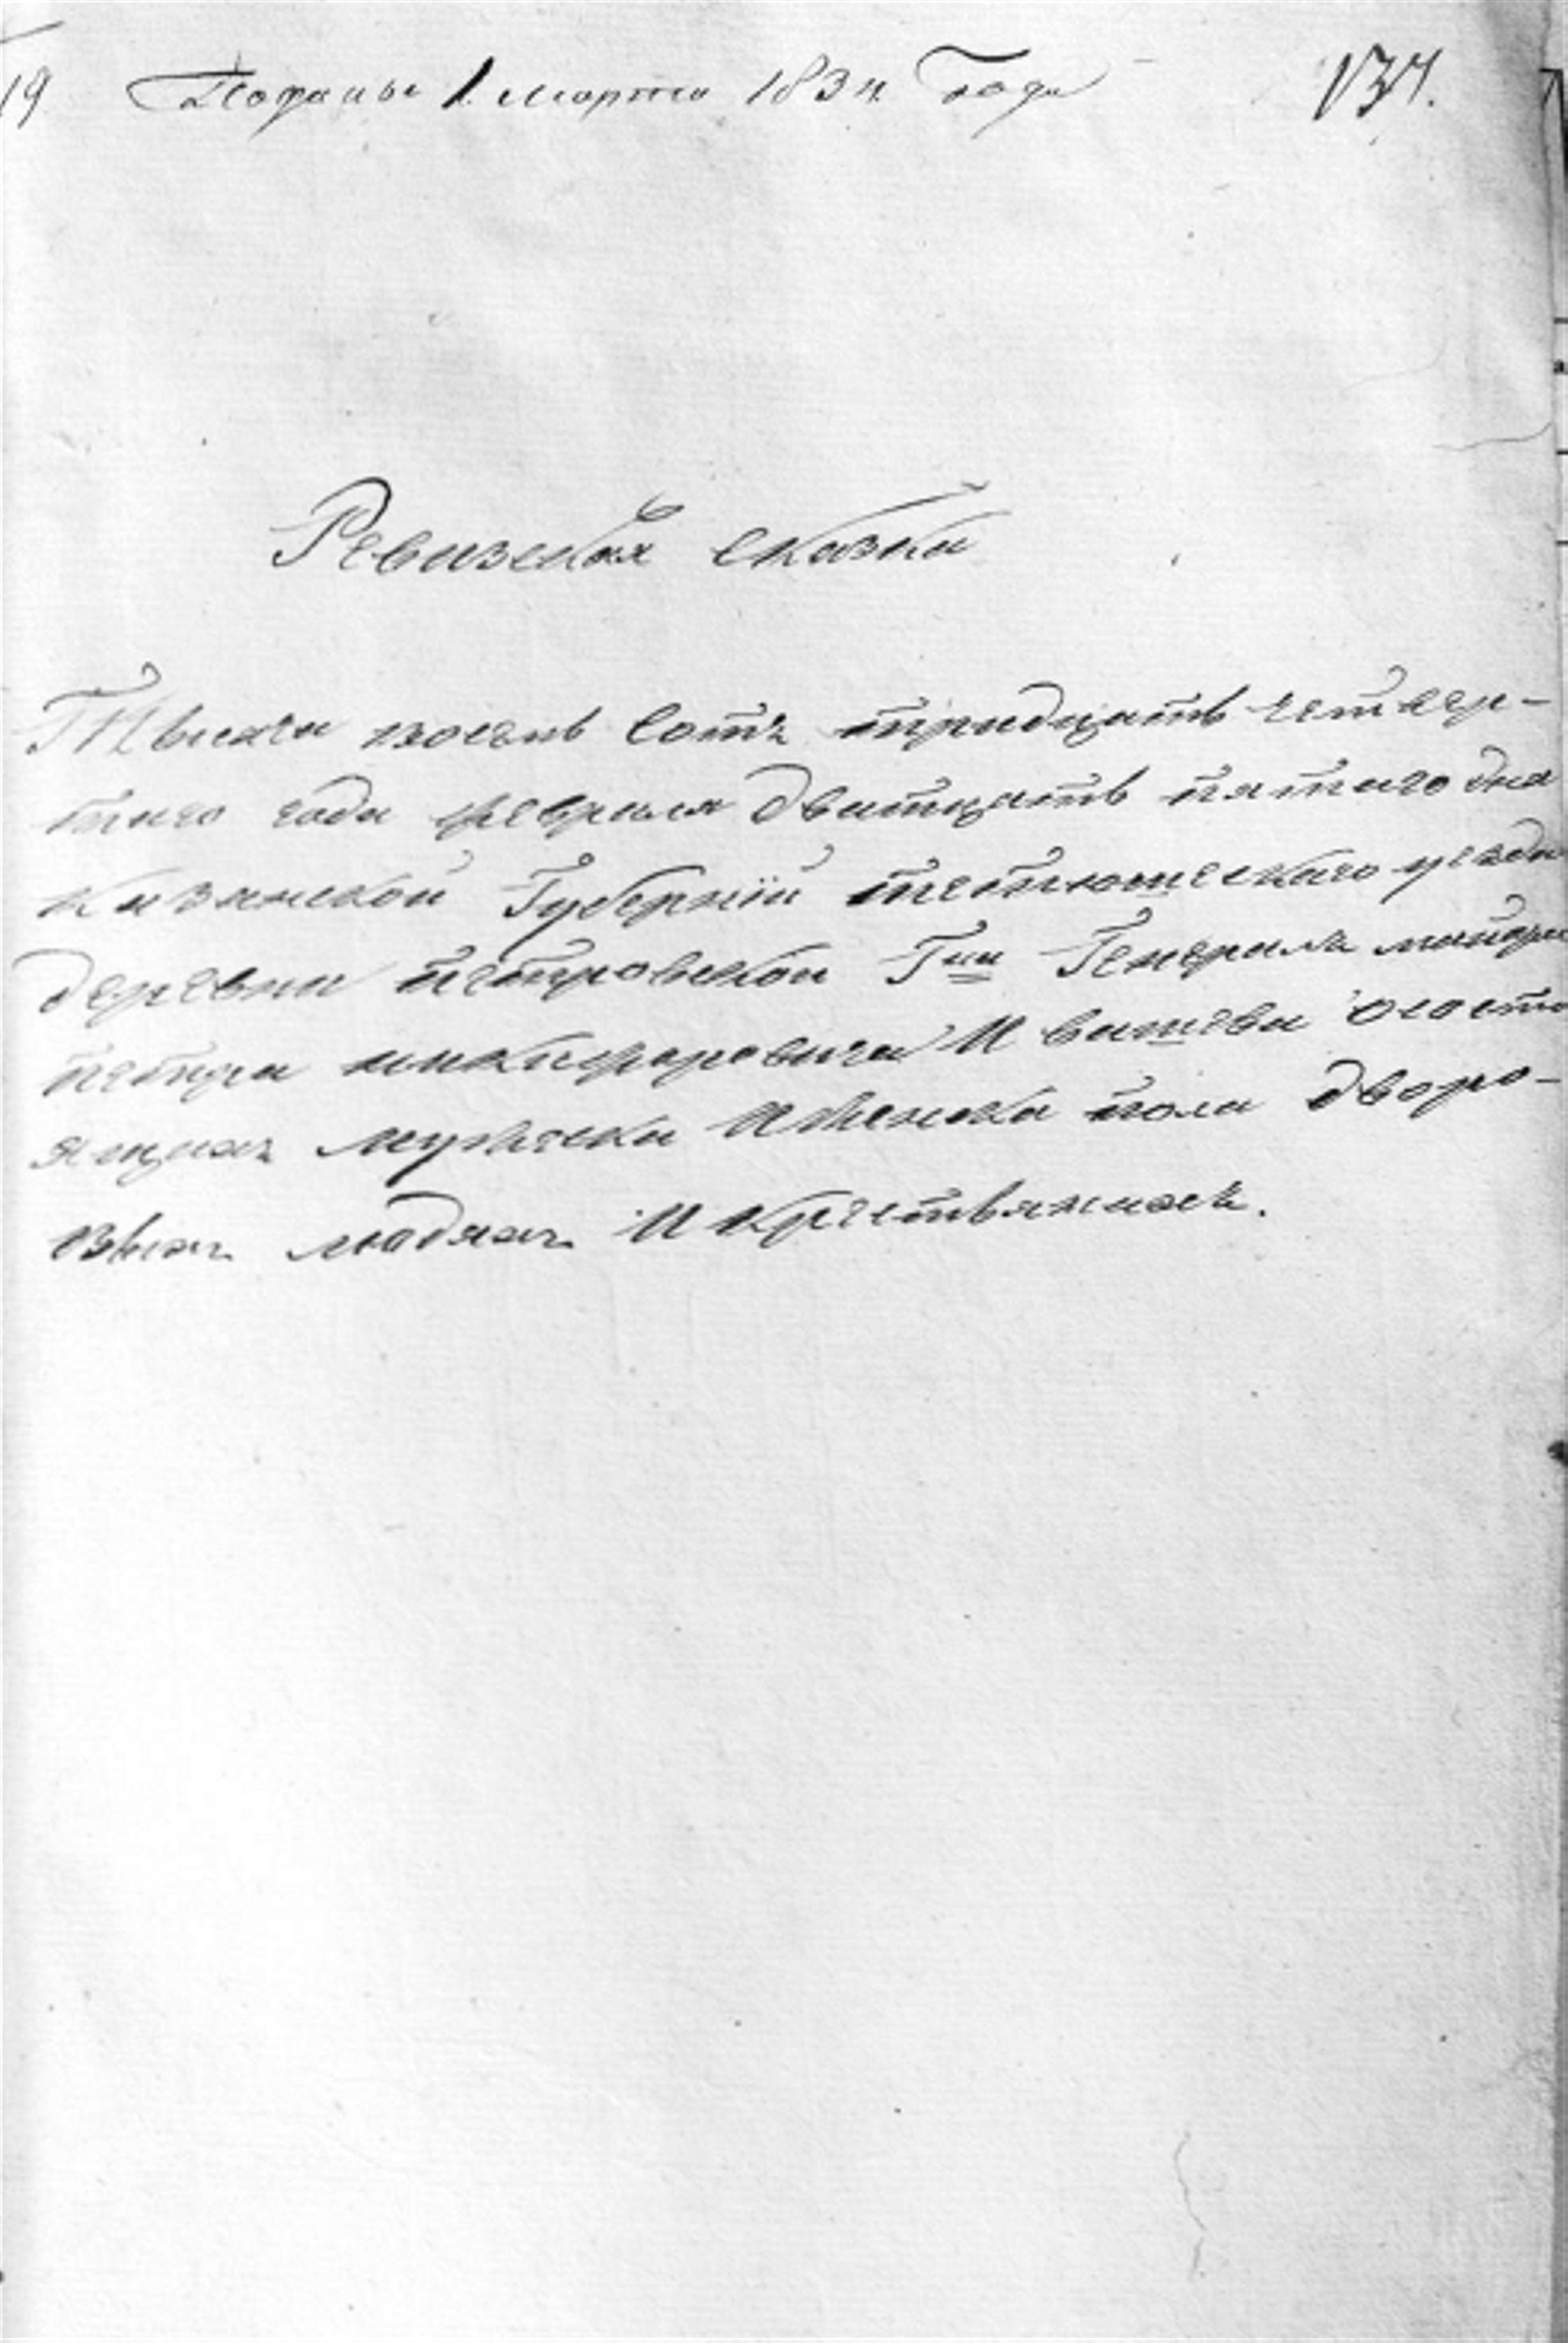 19 Поданы 1. Марта 1834 года 134.
Ревизская сказка
Тысяча восемь сотъ тридцать четвер-
таго года февраля дватцать пятаго дня
Казанской Губерніи тетюшескаго уезда
деревни петровской Гна Генерала маиора
петра никифоровича Ивашева о состо
ящихъ мужеска И женска пола дворо-
выхъ людяхъ И крестьянахъ.